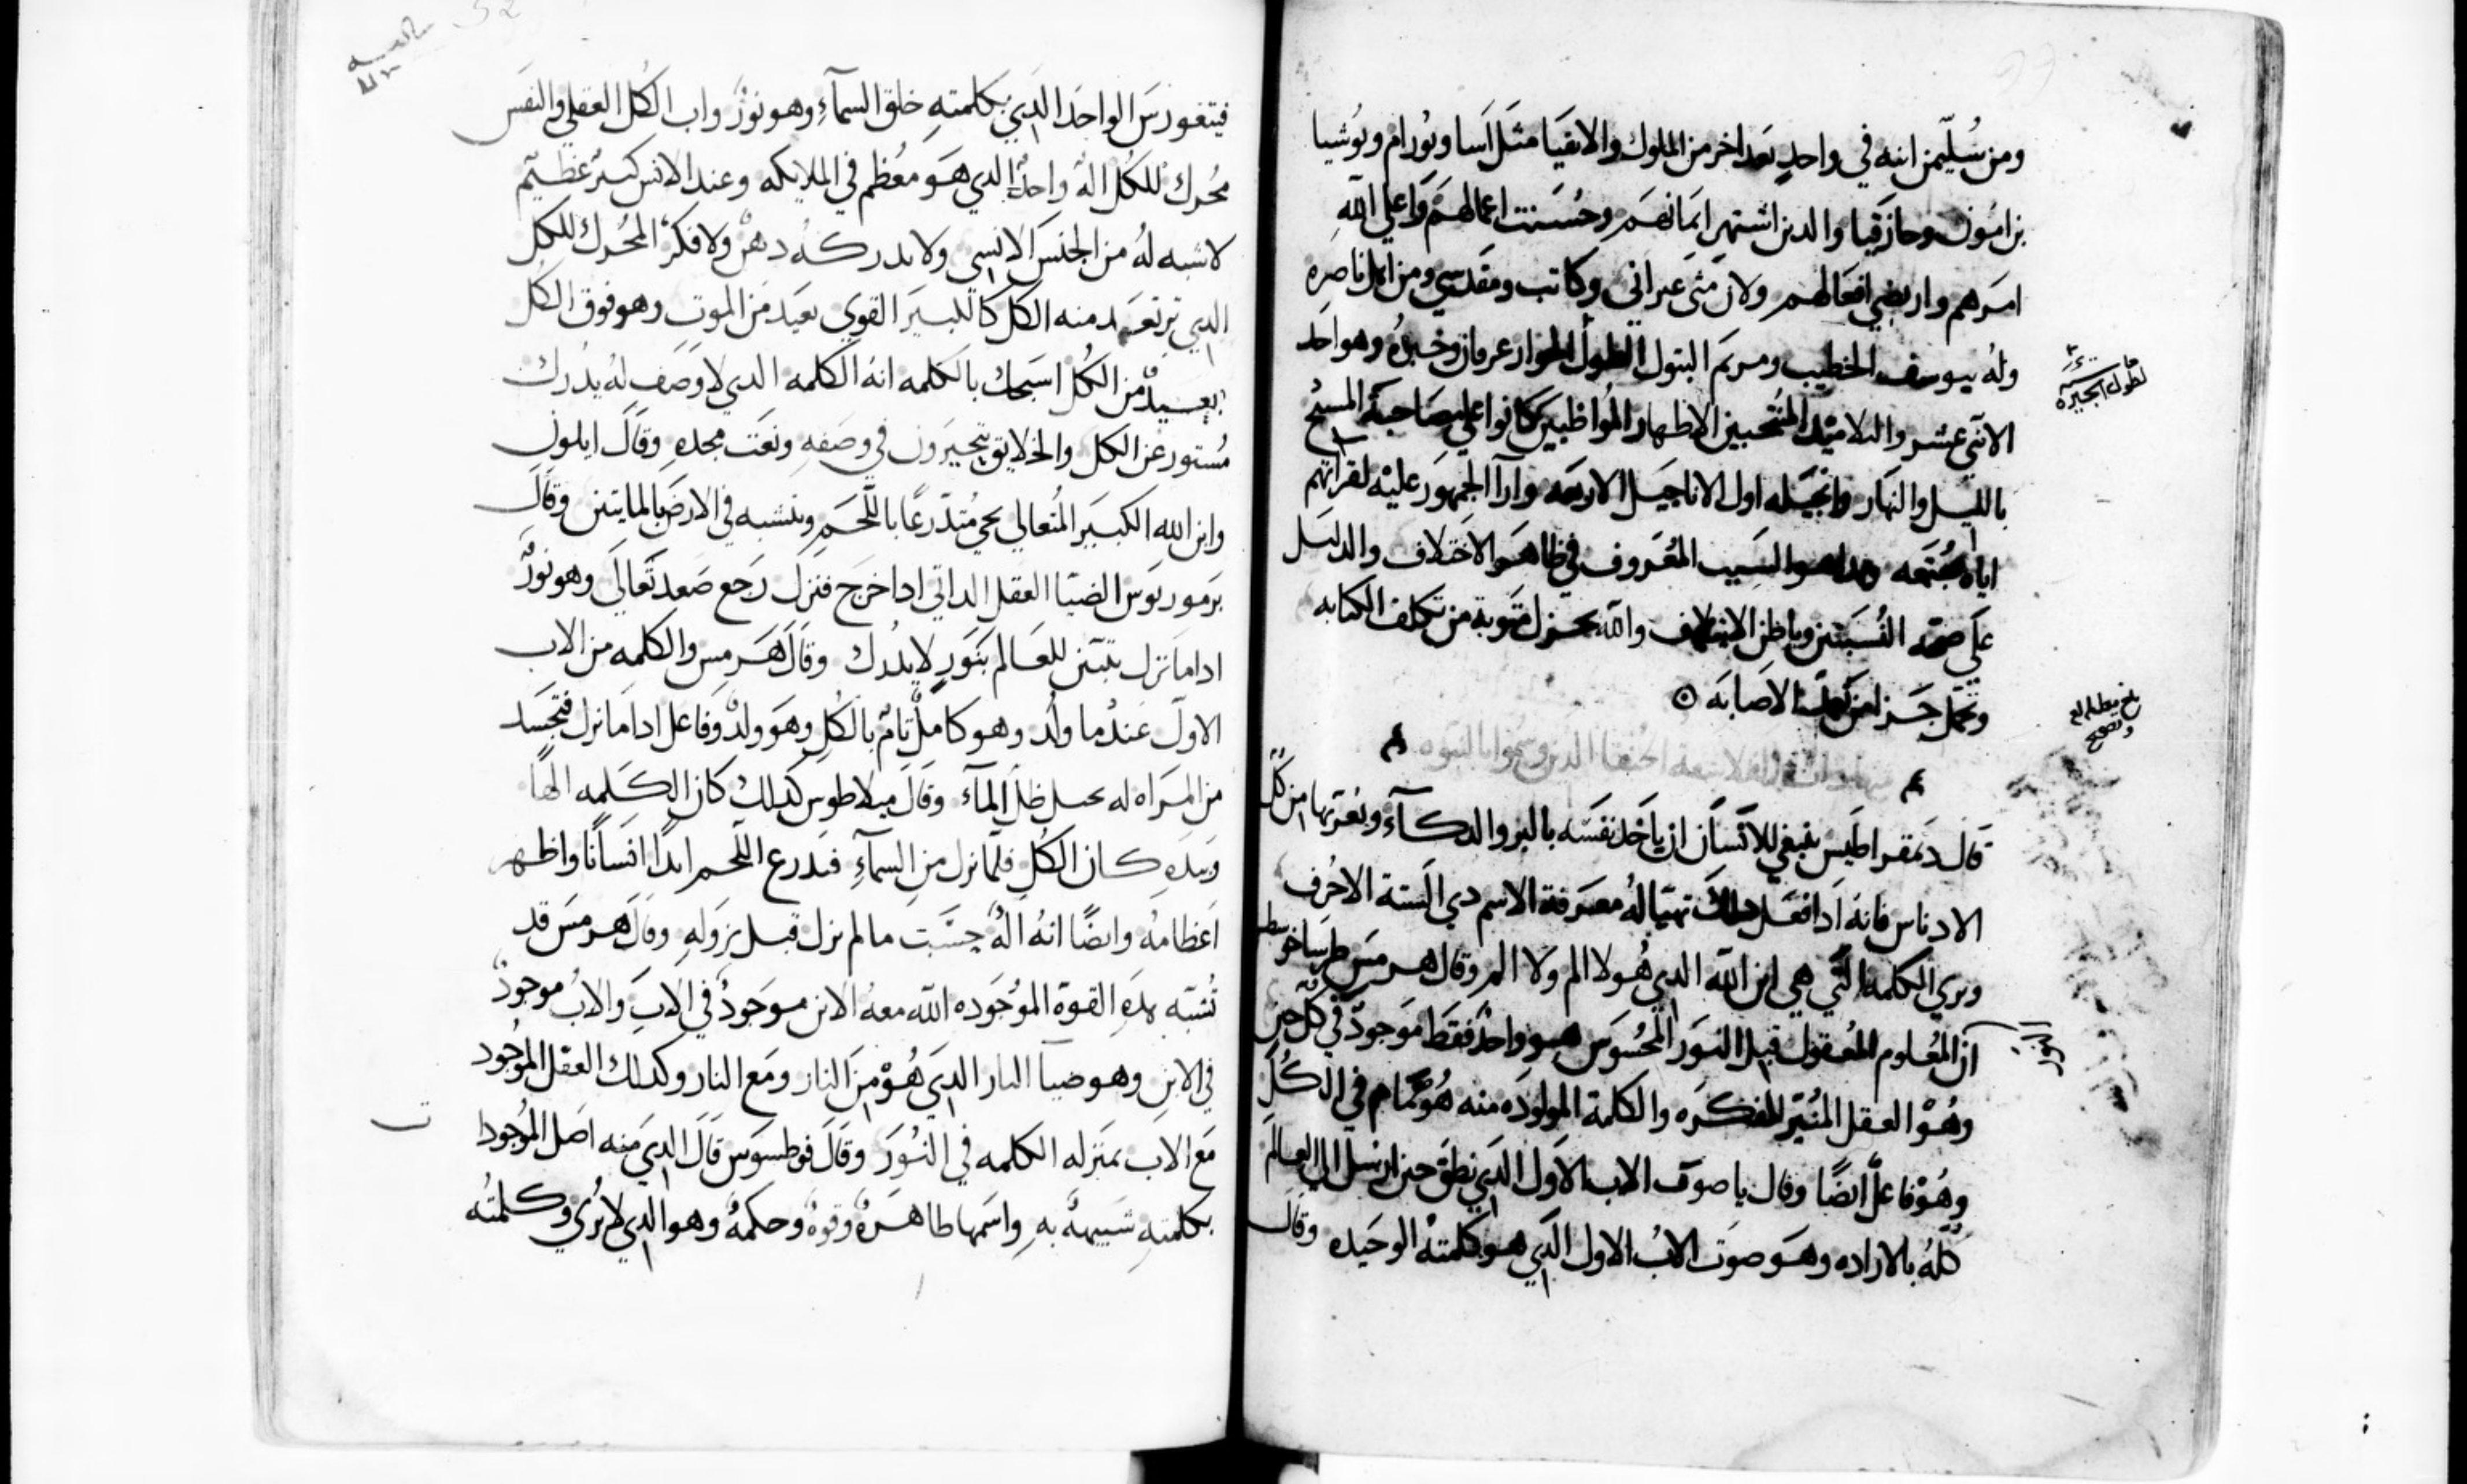 ومن سُليمن ابنه في واحدٍ بَعد اخر من الملوك والاتقيا مثل اَسا ويُورام ويوشيا
بن امون وحازقيا والدين اشتهر ايمانهم وحسنت اعمالهم واعلى الله
امرهم وارتضي افعالهم ولان متى عبراني وكاتب ومقدسي ومن اهل ناصره
وله بيوسف الخطيب ومريم البتول الطول الجوار عرفان وخبره وهو احد
الاثني عشر والتلاميد المنتخبين الاطهار المواظبين كانوا على صاحبة المسيح
بالليل والنهار وانجيله اول الاناجيل الاربعه وارآ الجمهور عليه لقراتهم
اياه مجتمعه وهدا هو السبب المعروف في ظاهر الاختلاف والدليل
على صحة النسبتين وباطن الايتلاف والله يجزل مثوبة من تكلف الكتابه
الاصابه
الحنفا الدين بالنبوه
قال دَيمقراطيس ينبغي للانسان ان ياخذ نفسه بالبر والدكآء ويغربها من كل
الادناس فانه ادا فعل دلك تهيا له معرفة الاسم دي الستة الاحرف
ويري الكلمه التي هي ابن الله الدي هُو لا الم ولا المر وقال هرمس
ان المعلوم المعقول قبل النور المحسوس هو واحدٌ فقط موجودٌ في كل حين
وهُو العقل المُنير للفكره والكلمة المولوده منه هُو تمام في الكُل
وهُو فاعلٌ ايضًا وقال يا صوت الاب الاول الدي نطق حين ارسل الى العالم
كلهُ بالاراده وهو صوت الابُ الاول الدي هو كلمتهُ الوحيده وقال
فيتغورس الواحد الدي بكلمتهِ خلق السمآءِ وهو نورٌ واب الكُل العقلي والنفس
محُرك للكُل الهٌ واحدٌ الدي هو مُعظم في الملايكه وعند الانس كبيرٌ عظيم
لا شبه لهُ من الجنس الانسي ولا يدركهُ دهنٌ ولا فكرٌ المحُرك للكل
الدي ترتعد منه الكل كالكبير القوي بعيد من الموت وهو فوق الكل
بعيدٌ من الكُل اسبحك بالكلمه انهُ الكلمه الدي لا وصف له يدرك
مُستور عن الكل والخلايق يتحيرون في وصفهِ ونعت مجدهِ وقال ابلون
وابن الله الكبير المُتعالي يحي مُتدرعًا باللحم ويتشبه في الارض بالمايتين وقال
برمورنوس الضيا العقل الداتي ادا خرج فنزل رجع صعد تعالى وهو نورٌ
ادا ما نزل يتبين للعالم بنورٍ لا يدرك وقال هرمس والكلمه من الاب
الاول عندما وُلد وهو كاملٌ تامٌ بالكُل وهو ولدٌ وفاعل ادا ما نزل فتجسد
من المراه له ظل المآء وقال ميلاطوس كدلك كان الكلمه الهًا
وبيدهِ كان الكُل فلما نزل من السمآءِ فتدرع اللحم ابدًا انسانًا واظهر
اعظامهُ وايضًا انهُ الهٌ ما لم نزل قبل نزولهِ وقال هرمس قد
نُنبّه بهدهِ القوة المُوجوده الله معهُ الابن موجودٌ في الابِ والابُ موجودٌ
في الابنِ وهو ضيآ النار الدي هُو من النار ومع النار وكدلك العقل المُوجود
مع الاب بمنزله الكلمه في النُور وقال فوطسوس قال الدي منه اصل المُوجودا
بكلمتهِ شبيههٌ بهِ واسمها طاهرهٌ وقوهٌ وحكمهٌ وهو الدي لا يُرى وكلمتُه